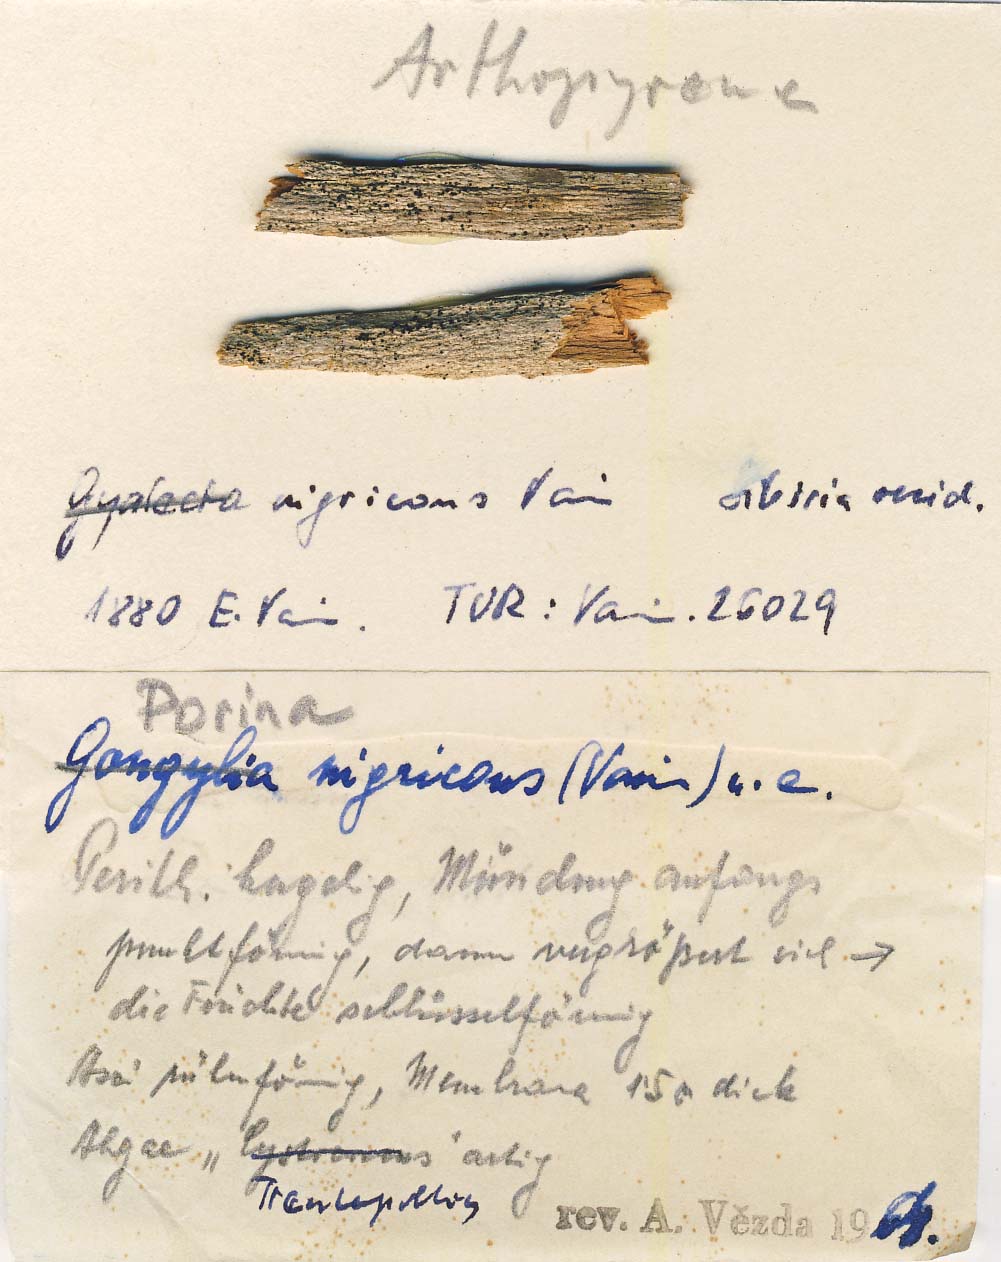 Arthopyrenia
Gyalecta nigricans Vain Sibiria merid.
1880 E. Vain. TUR: Vain. 26029
Porina
Gongylia nigricans (Vain) n. c.
Perith. kugelig, Mündung anfangs
punktförmig, dann vergrößert sich →
die Früchte schlüsselförmig
Asci füllenförmig, Membrana dick
Algae „ Cystococcus" artig
Trentepohlia
rev. A. Vězda 1964.